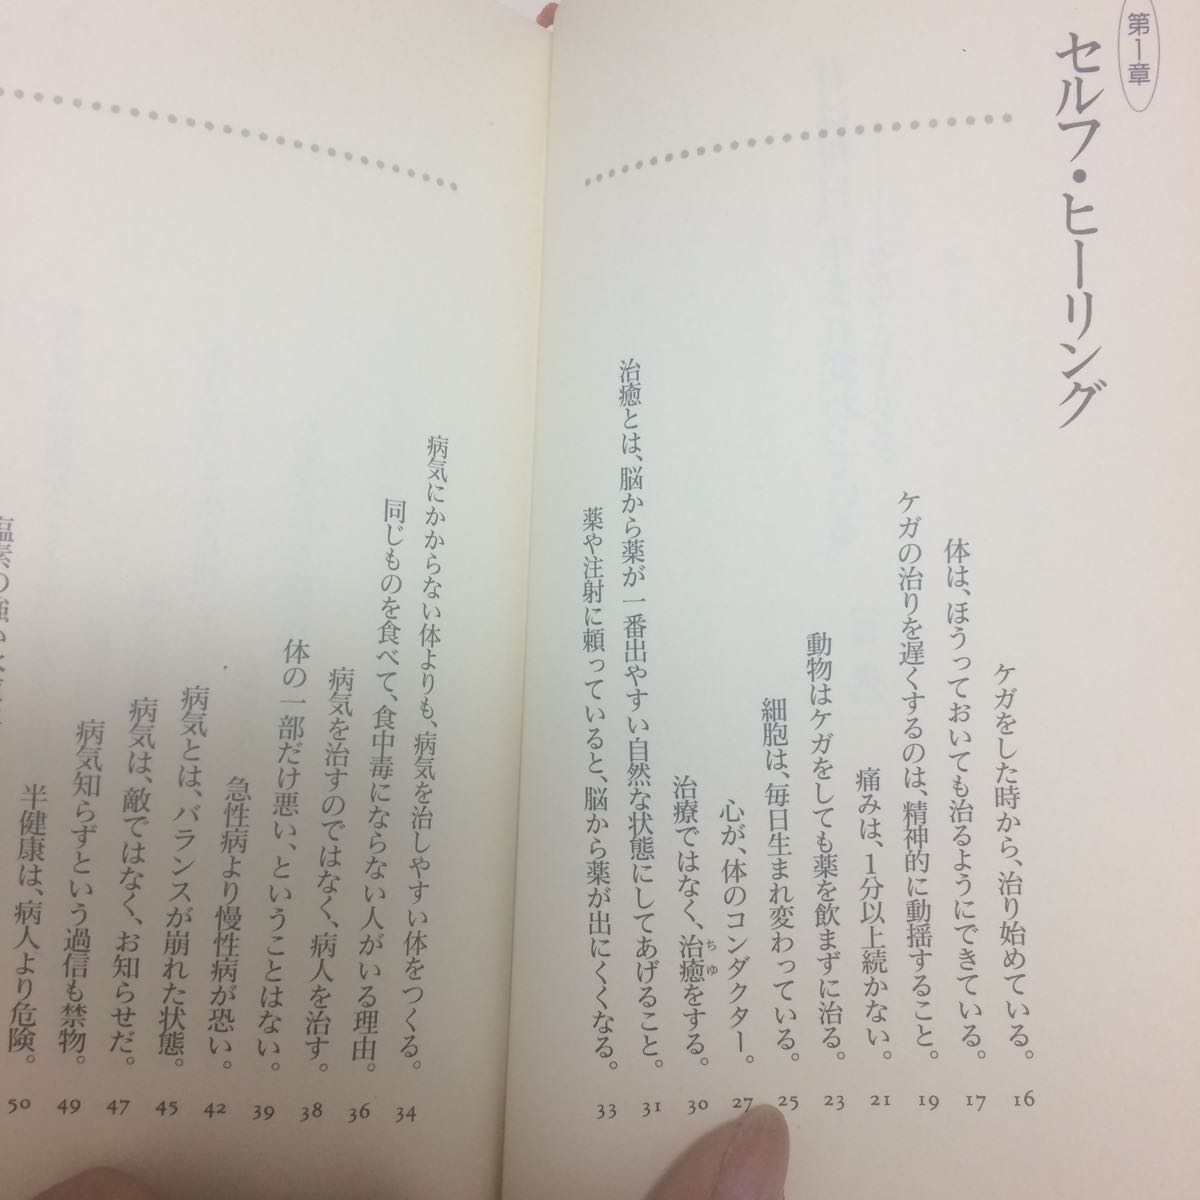 第1章
セルフ・ヒーリング
ケガをした時から、治り始めている。 16
体は、ほうっておいても治るようにできている。 17
ケガの治りを遅くするのは、精神的に動揺すること。 19
痛みは、1分以上続かない。 21
動物はケガをしても薬を飲まずに治る。 23
細胞は、毎日生まれ変わっている。 25
心が、体のコンダクター。 27
治療ではなく、治癒をする。 30
ちゆ
治癒とは、脳から薬が一番出やすい自然な状態にしてあげること。 31
薬や注射に頼っていると、脳から薬が出にくくなる。 33
病気にかからない体よりも、病気を治しやすい体をつくる。 34
同じものを食べて、食中毒にならない人がいる理由。 36
病気を治すのではなく、病人を治す。 38
体の一部だけ悪い、ということはない。 39
急性病より慢性病が恐い。 42
病気とは、バランスが崩れた状態。 45
病気は、敵ではなく、お知らせだ。 47
病気知らずという過信も禁物。 49
半健康は、病人より危険。 50
塩素の強い